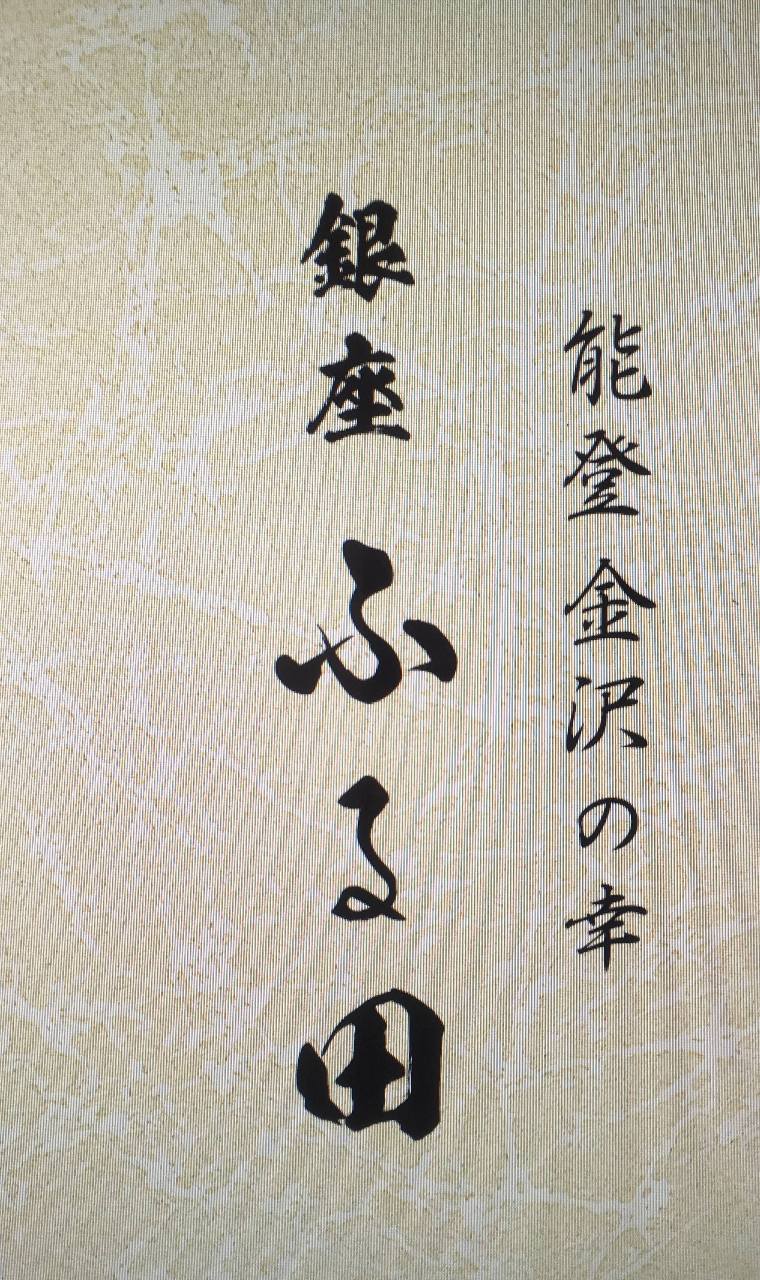 能登金沢の幸
銀座ふる田